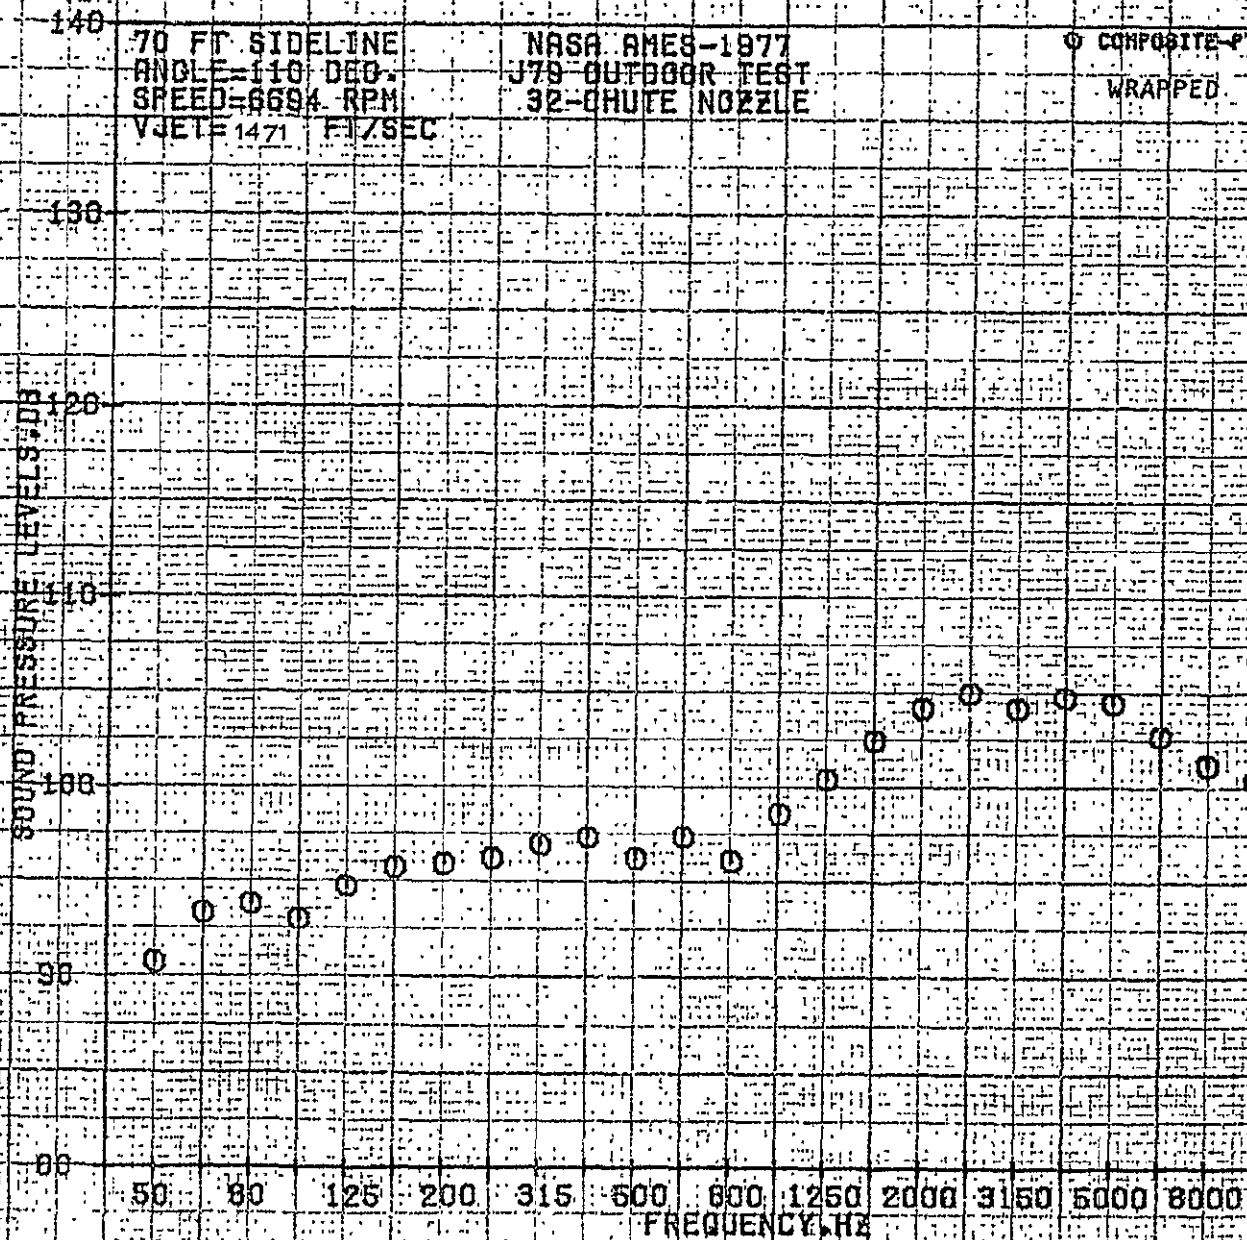 140
70 FT SIDELINE
ANGLE=110 DEG.
SPEED=6694 RPM
VJET= 1471 FT/SEC
NASA AMES-1977
J79 OUTDOOR TEST
32-CHUTE NOZZLE
COMPOSITE-P
WRAPPED
130
120
110
100
90
80
SOUND PRESSURE LEVELS,DB
50 80 125 200 315 500 800 1250 2000 3150 5000 8000
FREQUENCY,HZ